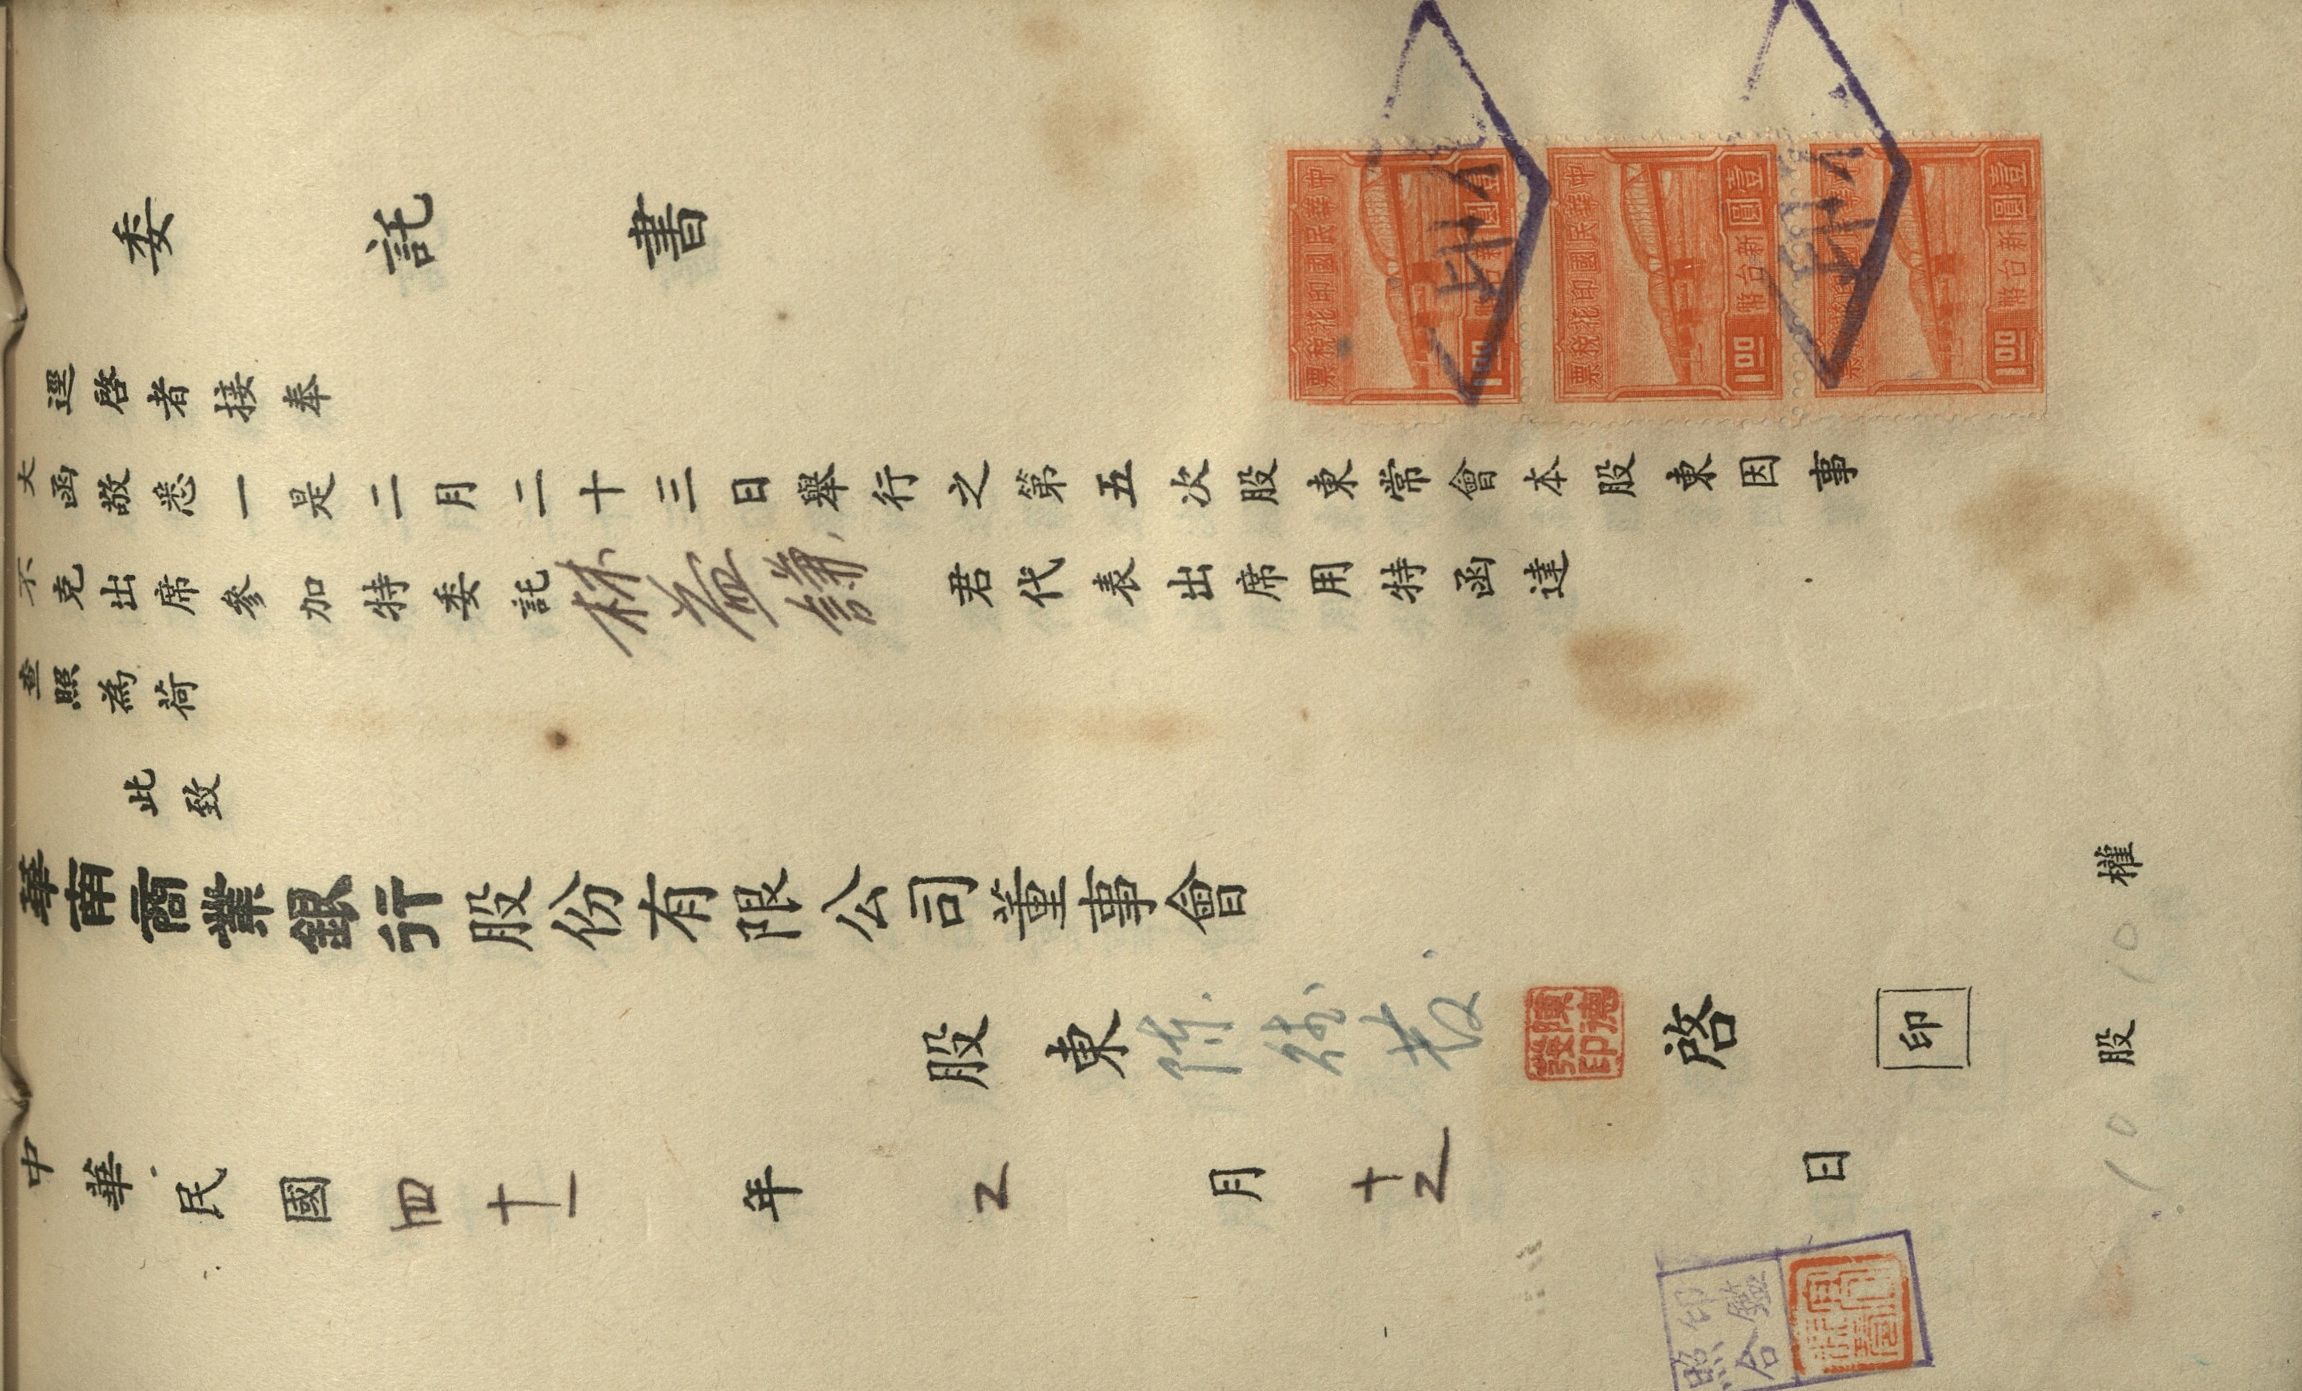 委託書
逕啓者接奉
大函敬悉一是二月二十三日舉行之第五次股東常會本股東因事
不克出席參加特委託林益謙君代表出席用特函達
查照為荷
此致
華南商業銀行股份有限公司董事會
股東陳德發啓 印
陳德發印
10股10權
中華民國四十一年2月十2日
中華民國印花稅票
新台幣壹圓
1.00
中華民國印花稅票
新台幣壹圓
1.00
新台幣壹圓
1.00
印鑑
照合